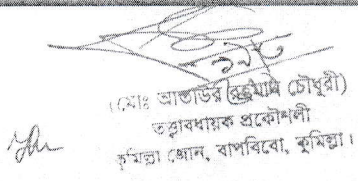 (মোঃ আতাউর রহমান চৌধুরী)
তত্ত্বাবধায়ক প্রকৌশলী
কুমিল্লা জোন, বাপবিবো, কুমিল্লা।